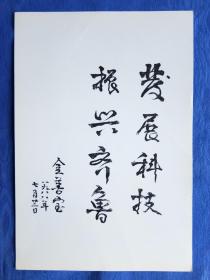 發展科技
振兴齐鲁
金善宝
一九八八年
七月廿一日